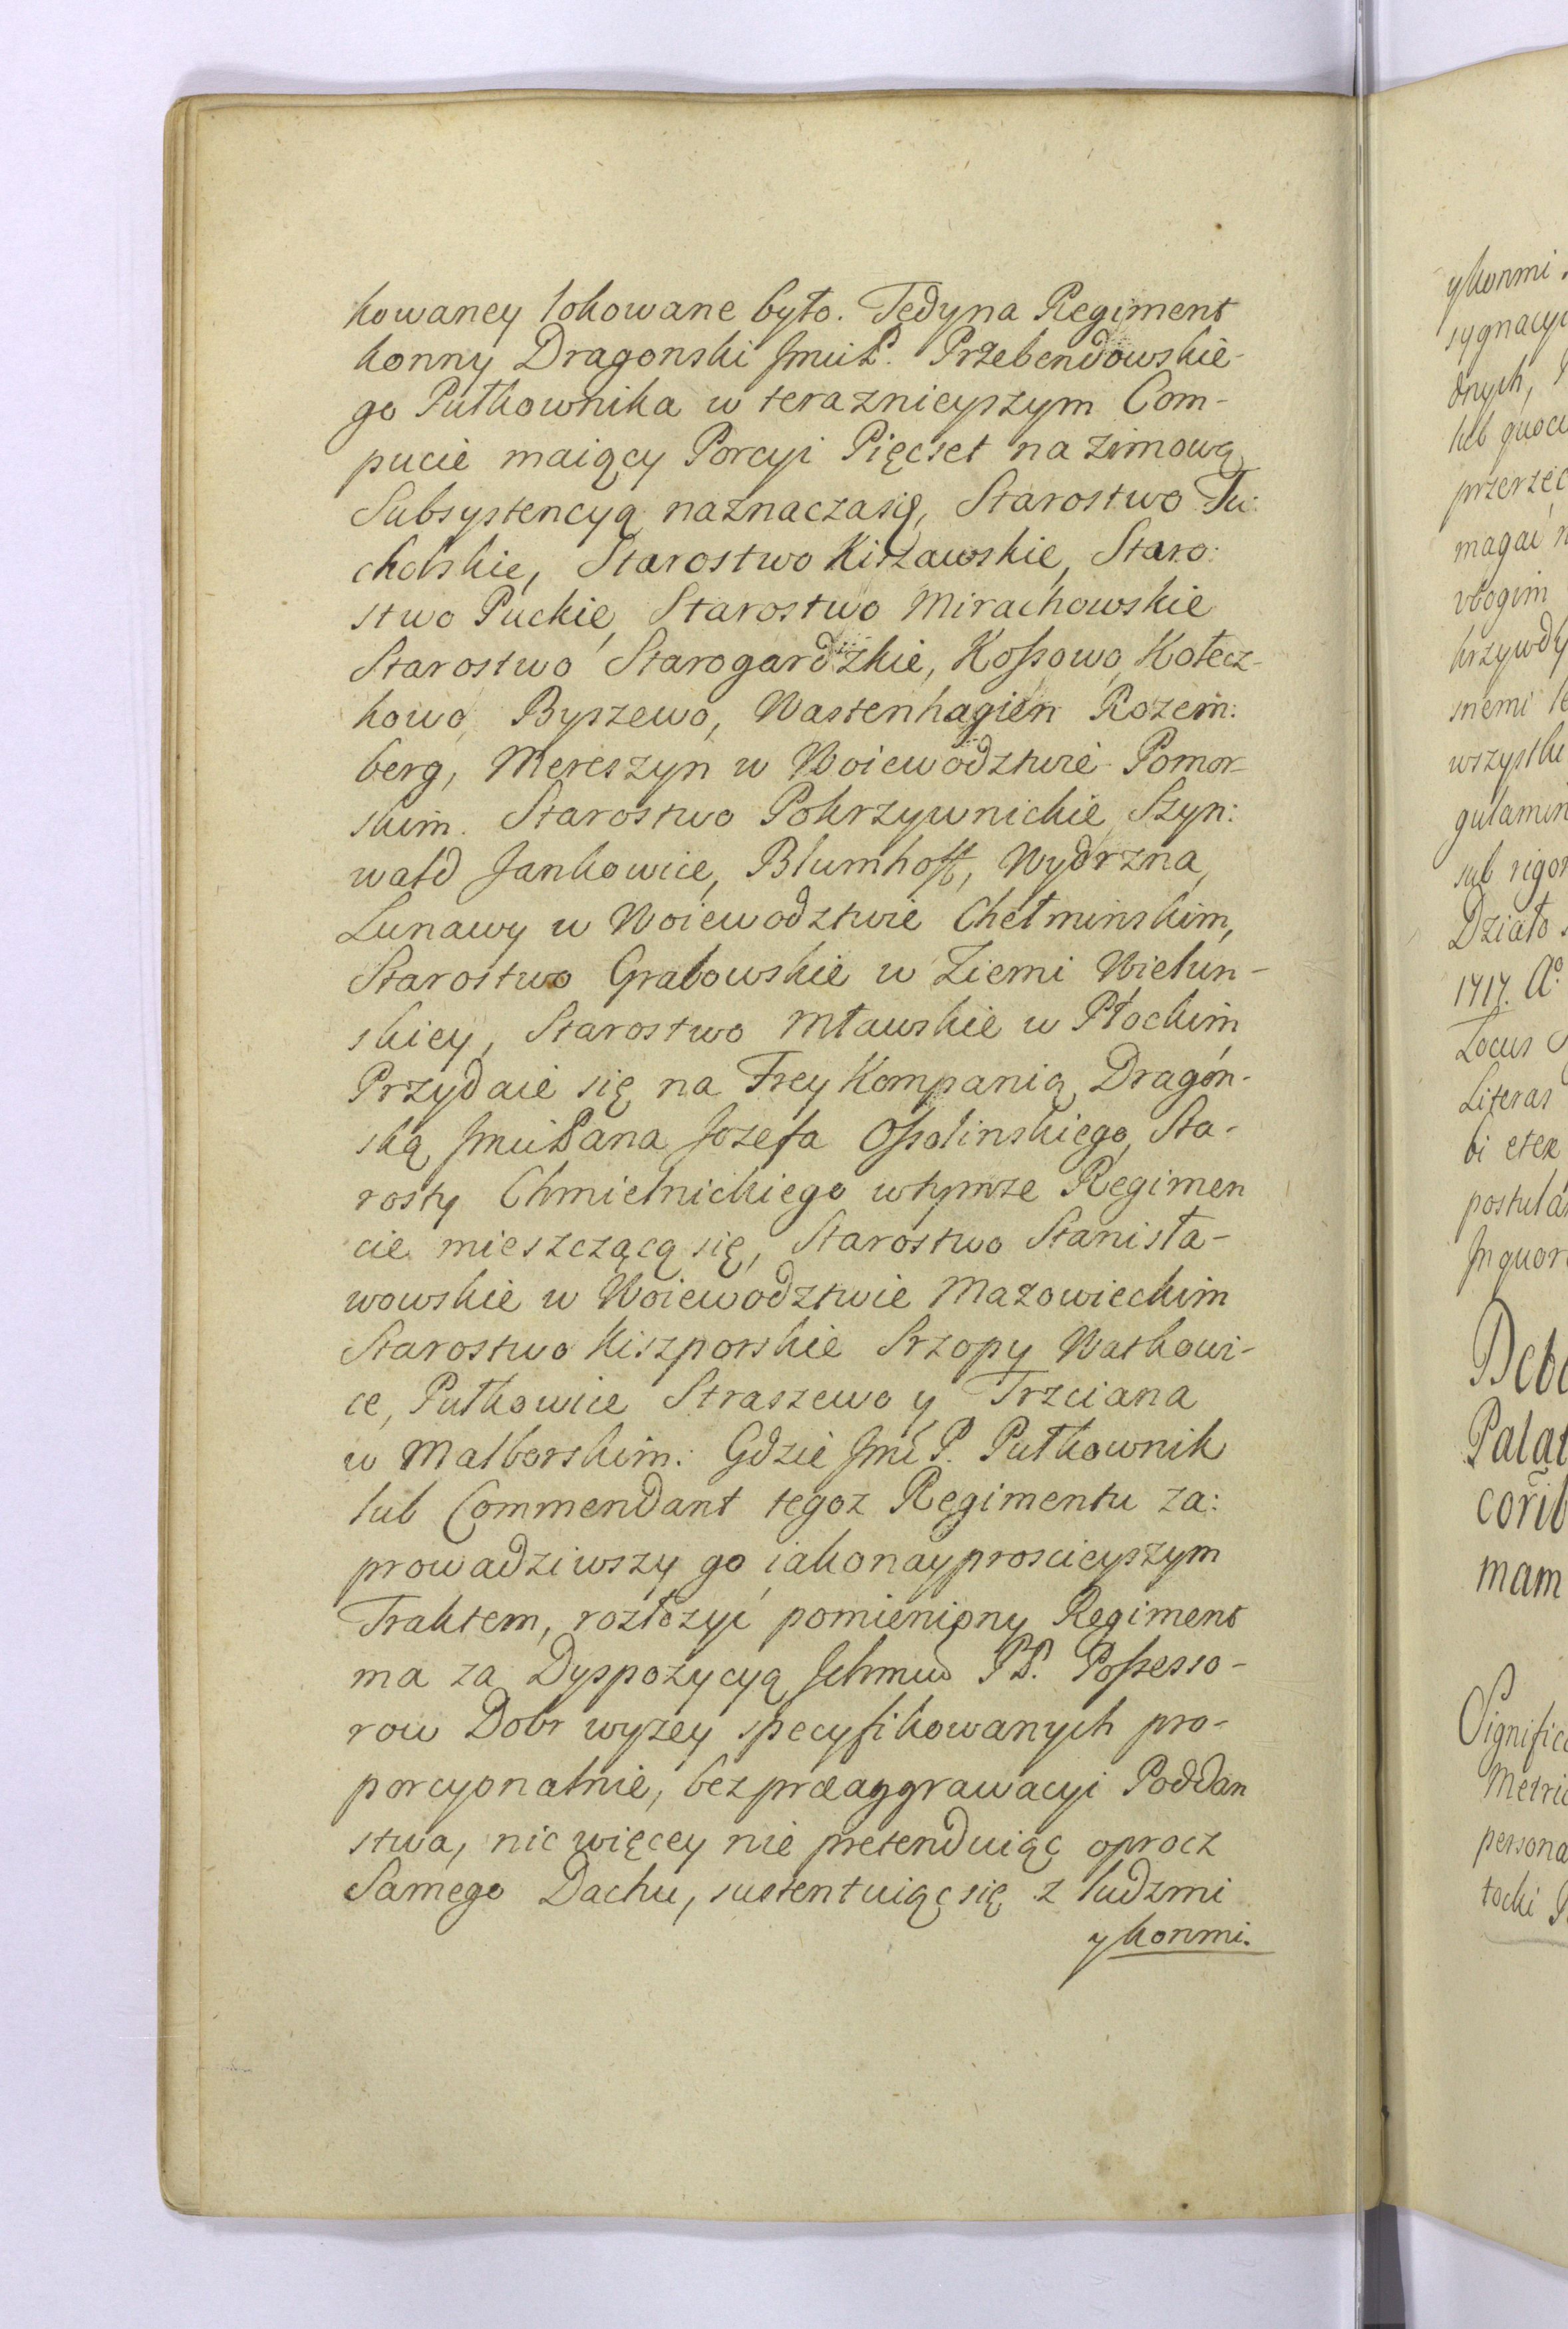 kowaney lokowane było. Tedy na Regiment
konny Dragonski JmciP. Przebendowskie-
go Pułkownika w teraznieyszym Com-
pucie maiący Porcyi Pięcset na zimową
Subsystencyą naznacza się, Starostwo Tu:
cholskie, Starostwo Kiszawskie, Staro:
stwo Puckie, Starostwo Mirachowskie
Starostwo Starogardzkie, Kossowo, Kołecz-
kowo, Byszewo, Wastenhagien Rozem:
berg, Mereszyn w Woiewodztwie Pomor-
skim. Starostwo Pokrzywnickie, Szyn:
wałd Jankowice, Blumhoff, Wydrzna,
Lunawy w Woiewodztwie Chełminskim,
Starostwo Grabowskie w Ziemi Wielun-
skiey, Starostwo Mławskie w Płockim
Przydaie się na Frey Kompanią Dragon-
ską JmciPana Jozefa Ossolinskiego, Sta-
rosty Chmielnickiego w tymze Regimen
cie mieszczącą się, Starostwo Stanisła-
wowskie w Woiewodztwie Mazowieckim
Starostwo Kiszporskie Srzopy Watkowi-
ce, Pułkowice Straszewo y Trzciana
w Malborskim: Gdzie Jmć P. Pułkownik
lub Commendant tegoz Regimentu za:
prowadziwszy go iako nayproscieyszym
Traktem, rozłozyć pomieniony Regiment
ma za Dyspozycyą Ichmciow PP. Possesso-
row Dobr wyzey specyfikowanych pro-
porcyonalnie, bez praeaggrawacyi Poddan
stwa, nic więcey nie pretenduiąc oprocz
Samego Dachu, sustentuiąc się z ludzmi
y konmi.
y konmi
sygnacyi
dnych,
magać
vbogim
krzywdy
snemi
sub rigor
Działo
1717. Ao
Locus
Literas
bi etex
In quor
Palat
mam
persona